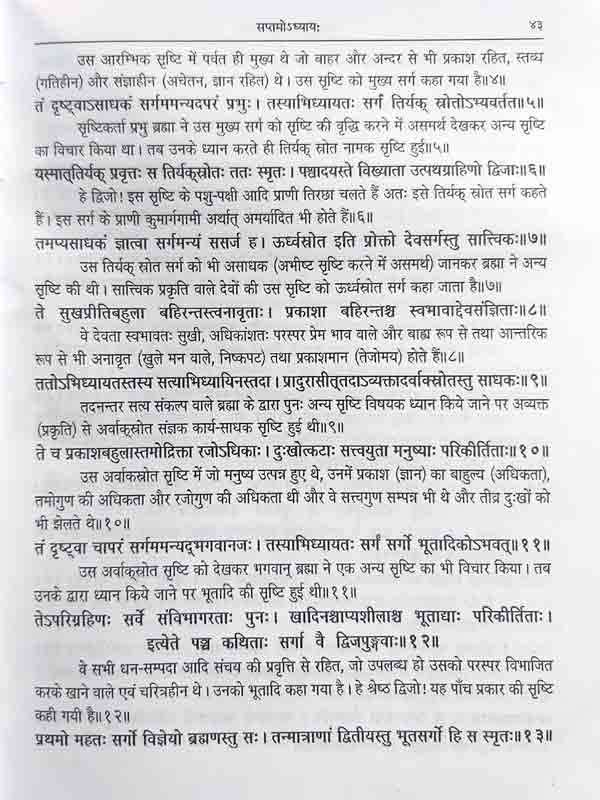 सप्तमोऽध्यायः
४३
उस आरम्भिक सृष्टि में पर्वत ही मुख्य थे जो बाहर और अन्दर से भी प्रकाश रहित, स्तब्ध
(गतिहीन) और संज्ञाहीन (अचेतन, ज्ञान रहित) थे। उस सृष्टि को मुख्य सर्ग कहा गया है॥४॥
तं दृष्ट्वाऽसाधकं सर्गममन्यदपरं प्रभुः। तस्याभिध्यायतः सर्गं तिर्यक् स्रोतोऽभ्यवर्तत॥५॥
सृष्टिकर्ता प्रभु ब्रह्मा ने उस मुख्य सर्ग को सृष्टि की वृद्धि करने में असमर्थ देखकर अन्य सृष्टि
का विचार किया था। तब उनके ध्यान करते ही तिर्यक् स्रोत नामक सृष्टि हुई॥५॥
यस्मात्तिर्यक् प्रवृत्तः स तिर्यक्स्रोतः ततः स्मृतः। पश्वादयस्ते विख्याता उत्पथग्राहिणो द्विजाः॥६॥
हे द्विजो! इस सृष्टि के पशु-पक्षी आदि प्राणी तिरछा चलते हैं अतः इसे तिर्यक् स्रोत सर्ग कहते
हैं। इस सर्ग के प्राणी कुमार्गगामी अर्थात् अमर्यादित भी होते हैं॥६॥
तमप्यसाधकं ज्ञात्वा सर्गमन्यं ससर्ज ह। ऊर्ध्वस्रोत इति प्रोक्तो देवसर्गस्तु सात्त्विकः॥७॥
उस तिर्यक् स्रोत सर्ग को भी असाधक (अभीष्ट सृष्टि करने में असमर्थ) जानकर ब्रह्मा ने अन्य
सृष्टि की थी। सात्त्विक प्रकृति वाले देवों की उस सृष्टि को ऊर्ध्वस्रोत सर्ग कहा जाता है॥७॥
ते सुखप्रीतिबहुला बहिरन्तस्त्वनावृताः। प्रकाशा बहिरन्तश्च स्वभावाद्देवसंज्ञिताः॥८॥
वे देवता स्वभावतः सुखी, अधिकांशतः परस्पर प्रेम भाव वाले और बाह्य रूप से तथा आन्तरिक
रूप से भी अनावृत (खुले मन वाले, निष्कपट) तथा प्रकाशमान (तेजोमय) होते हैं॥८॥
ततोऽभिध्यायतस्तस्य सत्याभिध्यायिनस्तदा। प्रादुरासीत्तदाऽव्यक्तादर्वाक्स्रोतस्तु साधकः॥९॥
तदनन्तर सत्य संकल्प वाले ब्रह्मा के द्वारा पुनः अन्य सृष्टि विषयक ध्यान किये जाने पर अव्यक्त
(प्रकृति) से अर्वाक्स्रोत संज्ञक कार्य-साधक सृष्टि हुई थी॥९॥
ते च प्रकाशबहुलास्तमोद्रिक्ता रजोऽधिकाः। दुःखोत्कटाः सत्त्वयुता मनुष्याः परिकीर्तिताः॥१०॥
उस अर्वाक्स्रोत सृष्टि में जो मनुष्य उत्पन्न हुए थे, उनमें प्रकाश (ज्ञान) का बाहुल्य (अधिकता),
तमोगुण की अधिकता और रजोगुण की अधिकता थी और वे सत्त्वगुण सम्पन्न भी थे और तीव्र दुःखों को
भी झेलते थे॥१०॥
तं दृष्ट्वा चापरं सर्गममन्यद्भगवानजः। तस्याभिध्यायतः सर्गं सर्गो भूतादिकोऽभवत्॥११॥
उस अर्वाक्स्रोत सृष्टि को देखकर भगवान् ब्रह्मा ने एक अन्य सृष्टि का भी विचार किया। तब
उनके द्वारा ध्यान किये जाने पर भूतादि की सृष्टि हुई थी॥११॥
तेऽपरिग्रहिणः सर्वे संविभागरताः पुनः। खादिनश्चाप्यशीलाश्च भूताद्याः परिकीर्तिताः।
इत्येते पञ्च कथिताः सर्गा वै द्विजपुङ्गवाः॥१२॥
वे सभी धन-सम्पदा आदि संचय की प्रवृत्ति से रहित, जो उपलब्ध हो उसको परस्पर विभाजित
करके खाने वाले एवं चरित्रहीन थे। उनको भूतादि कहा गया है। हे श्रेष्ठ द्विजो! यह पाँच प्रकार की सृष्टि
कही गयी है॥१२॥
प्रथमो महतः सर्गो विज्ञेयो ब्रह्मणस्तु सः। तन्मात्राणां द्वितीयस्तु भूतसर्गो हि स स्मृतः॥१३॥